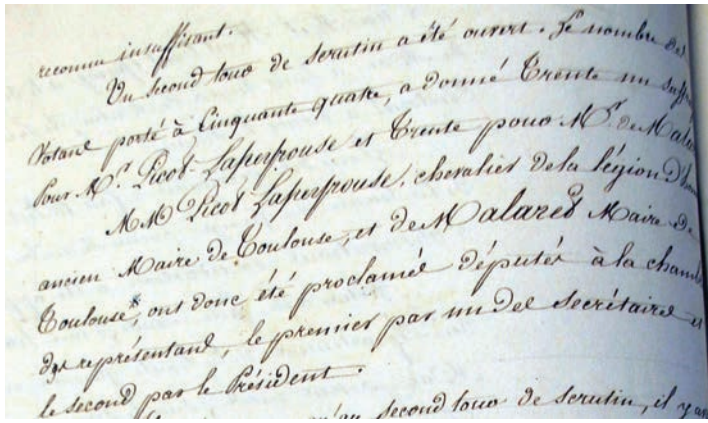 reconnu insuffisant.
Un Second tour de scrutin a été ouvert. Le nombre des
Votans porté à Cinquante quatre, a donné Trente un suff
Pour Mr. Picot Laperfrouse et Trente pour Mr. de Malar
MM Picot Laperfrouse, chevalier de la légion d'hon
ancien Maire de Toulouse, et de Malaret Maire de
Toulouse*, ont donc été proclamés députés à la chamb
des représentans, le premier par un des secrétaires et
le second par le Président.
qu'au second tour de scrutin, il y a